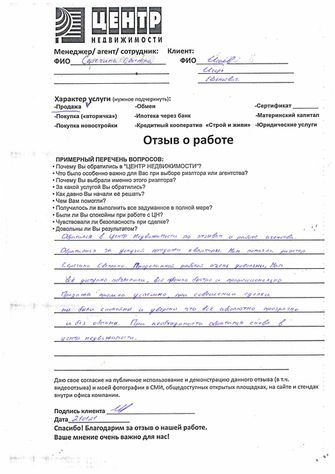 ЦЕНТР
НЕДВИЖИМОСТИ
Менеджер/ агент/ сотрудник: Клиент:
ФИО Светлана ФИО
Характер услуги (нужное подчеркнуть):
-Продажа -Обмен -Сертификат
-Покупка «вторичка» -Ипотека через банк -Материнский капитал
-Покупка новостройки -Кредитный кооператив «Строй и живи» -Юридические услуги
Отзыв о работе
ПРИМЕРНЫЙ ПЕРЕЧЕНЬ ВОПРОСОВ:
• Почему Вы обратились в "ЦЕНТР НЕДВИЖИМОСТИ"?
• Что было особенно важно для Вас при выборе риэлтора или агентства?
• Почему Вы выбрали именно этого риэлтора?
• За какой услугой Вы обратились?
• Как давно Вы начали её решать?
• Чем Вам помогли?
• Получилось ли выполнить все задуманное в полной мере?
• Были ли Вы спокойны при работе с ЦН?
• Чувствовали ли безопасность при сделке?
• Довольны ли Вы результатом?
Обратился в Центр Недвижимости по отзывам о работе агентства
Обратились за услугой продажи квартиры. Нам помогла риэлтор
Светлана. Проделанной работой очень довольны. Нам
всё доступно объяснили, все прошло быстро и профессионально
Продажа прошла успешно, при совершении сделки
мы были спокойны и уверены что все абсолютно прозрачно
и без обмана. При необходимости обратимся снова в
центр недвижимости.
Даю свое согласие на публичное использование и демонстрацию данного отзыва (в т.ч.
видеоотзыва) и моей фотографии в СМИ, общедоступных открытых площадках, на сайте и стендах
внутри офиса компании.
Подпись клиента
Дата
Спасибо! Благодарим за отзыв о нашей работе.
Ваше мнение очень важно для нас!